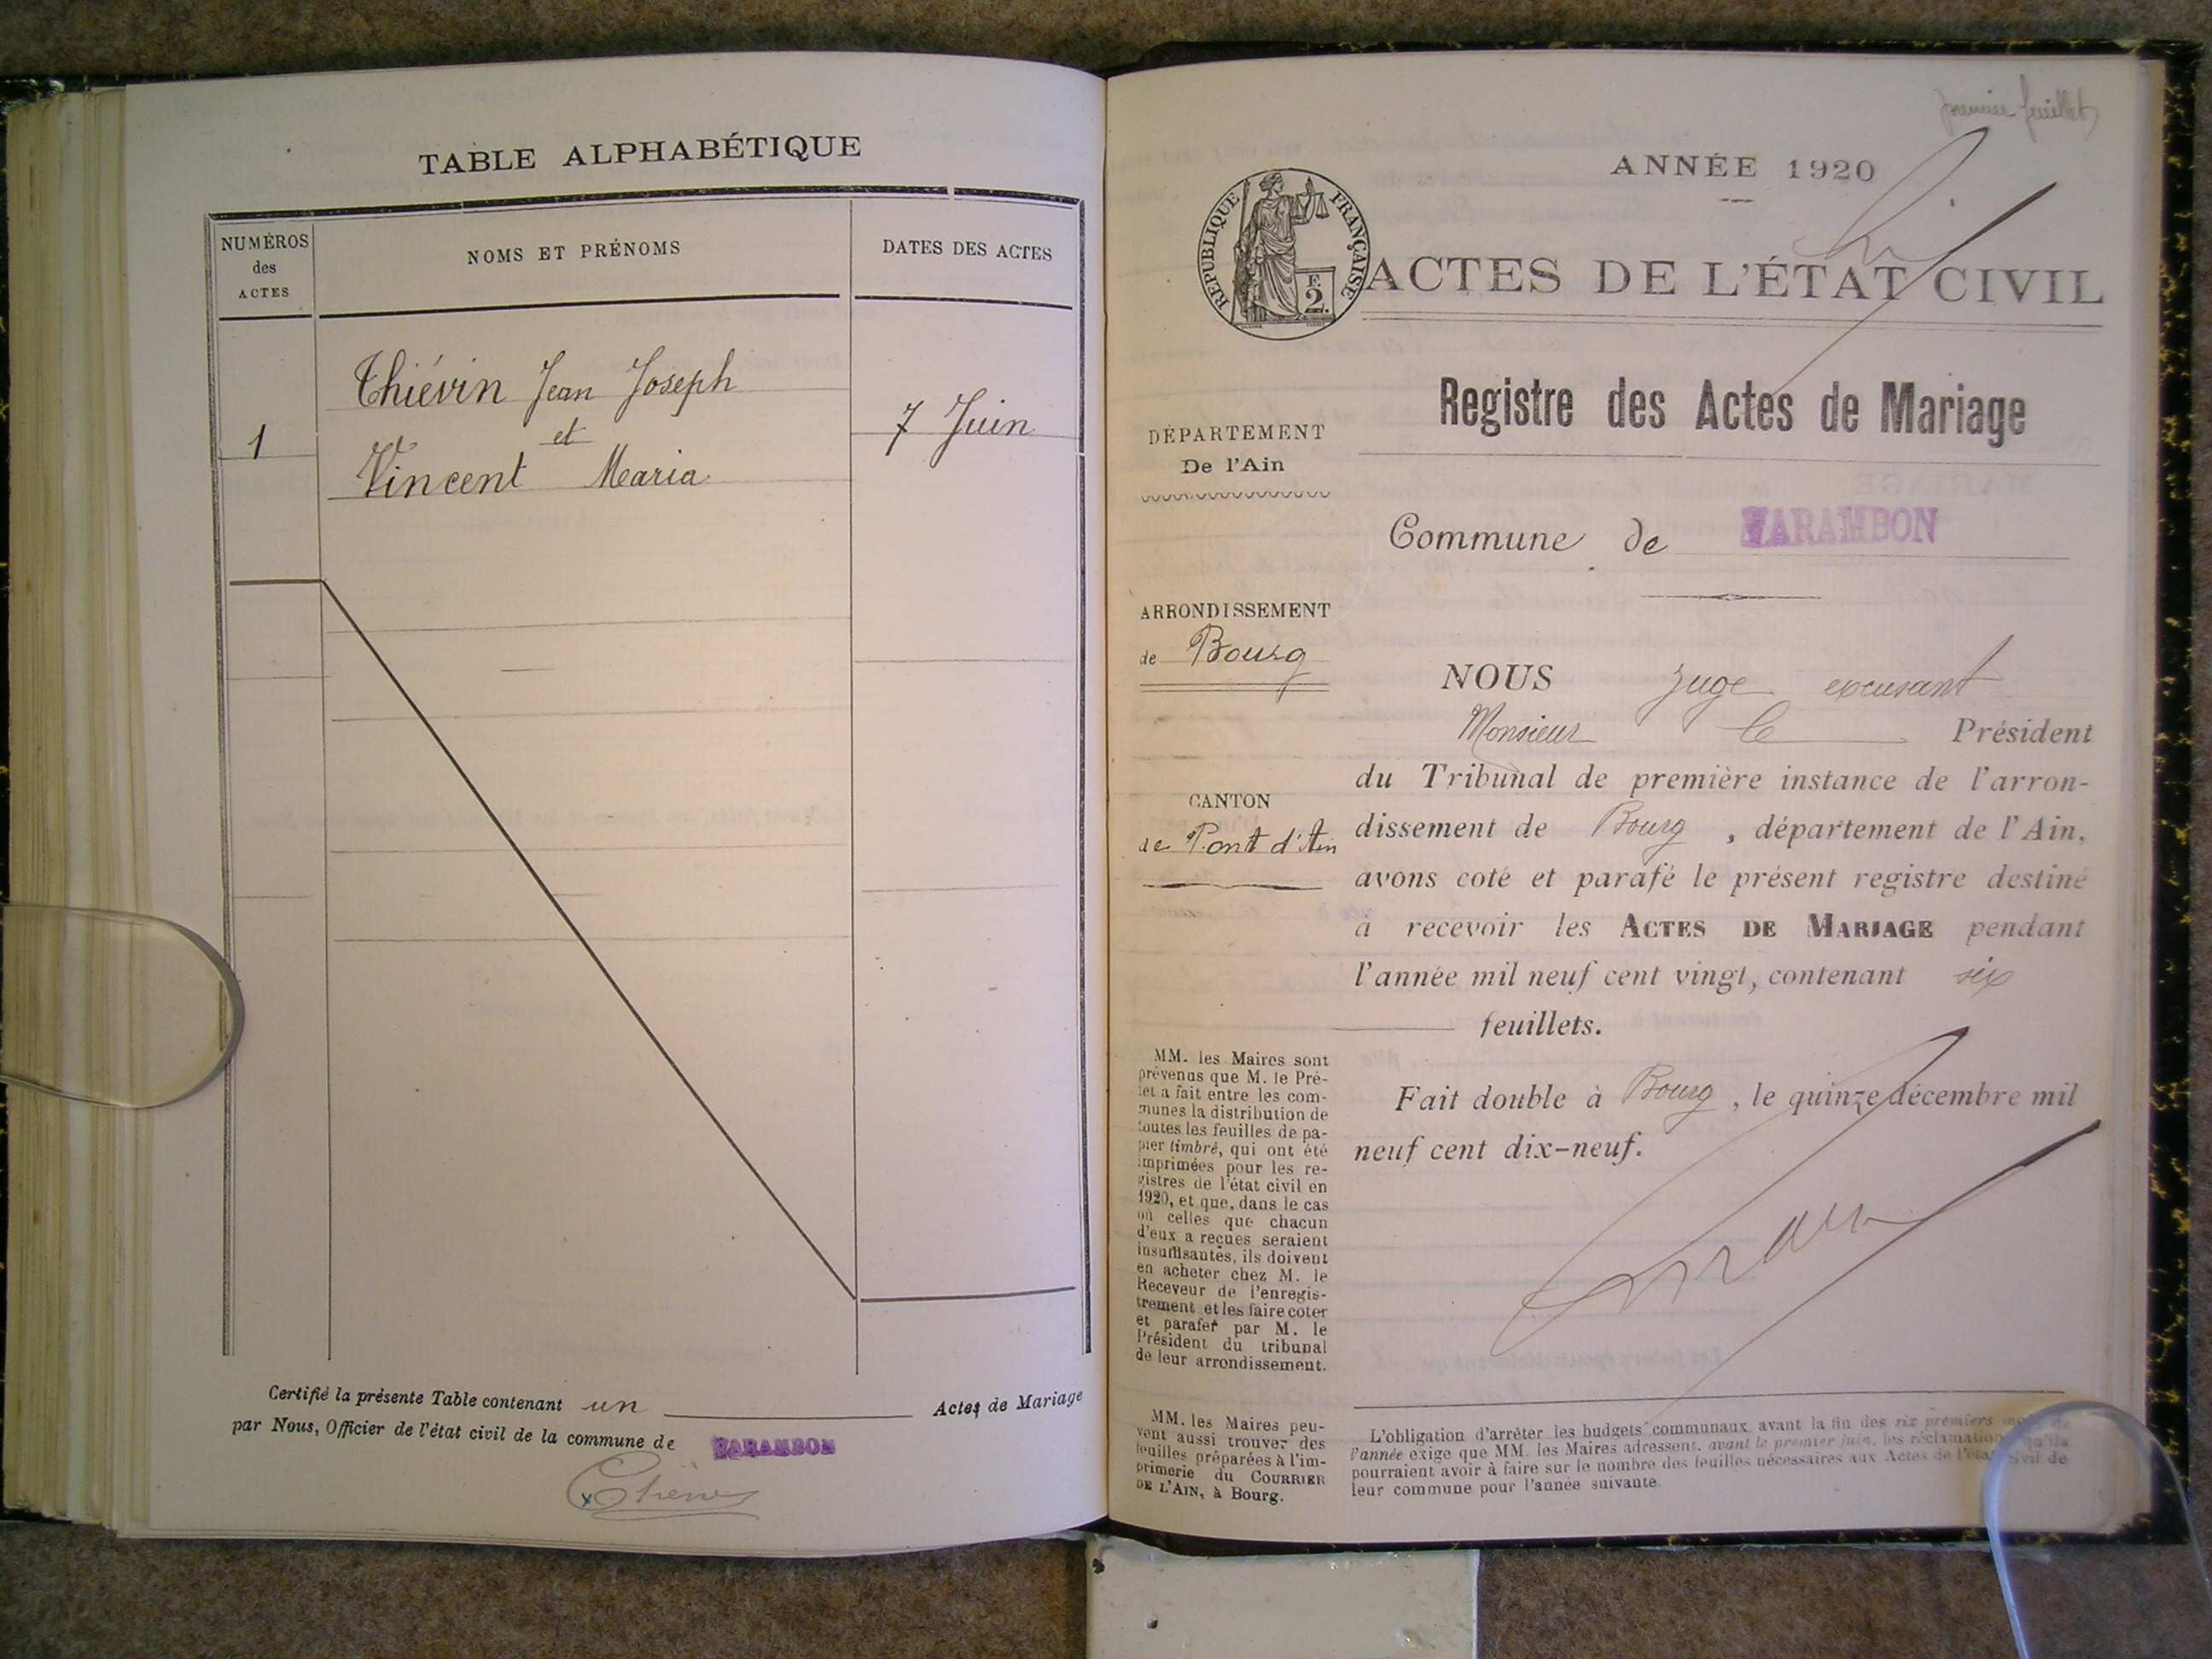 TABLE ALPHABÉTIQUE
NUMÉROS
des
ACTES
NOMS ET PRÉNOMS
DATES DES ACTES
1
Thiévin Jean Joseph
et
Vincent Maria
7 Juin
Certifié la présente Table contenant un Actes de Mariage
par Nous, Officier de l'état civil de la commune de VARAMBON
premier feuillet
ANNÉE 1920
RÉPUBLIQUE FRANÇAISE
2
ACTES DE L'ÉTAT CIVIL
Registre des Actes de Mariage
DÉPARTEMENT
De l'Ain
Commune de VARAMBON
ARRONDISSEMENT
de Bourg
CANTON
de Pont d'Ain
NOUS Juge excusant
Monsieur le Président
du Tribunal de première instance de l'arron-
dissement de Bourg, département de l'Ain,
avons coté et parafé le présent registre destiné
à recevoir les ACTES DE MARIAGE pendant
l'année mil neuf cent vingt, contenant six
feuillets.
Fait double à Bourg, le quinze décembre mil
neuf cent dix-neuf.
MM. les Maires sont
prévenus que M. le Pré-
fet a fait entre les com-
munes la distribution de
toutes les feuilles de pa-
pier timbré, qui ont été
imprimées pour les re-
gistres de l'état civil en
1920, et que, dans le cas
où celles que chacun
d'eux a reçues seraient
insuffisantes, ils doivent
en acheter chez M. le
Receveur de l'enregis-
trement et les faire coter
et parafer par M. le
Président du tribunal
de leur arrondissement.
MM. les Maires peu-
vent aussi trouver des
feuilles préparées à l'im-
primerie du COURRIER
DE L'AIN, à Bourg.
L'obligation d'arrêter les budgets communaux avant la fin des six premiers mois de
l'année exige que MM. les Maires adressent, avant le premier juin, les réclamations qu'ils
pourraient avoir à faire sur le nombre des feuilles nécessaires aux Actes de l'état civil de
leur commune pour l'année suivante.